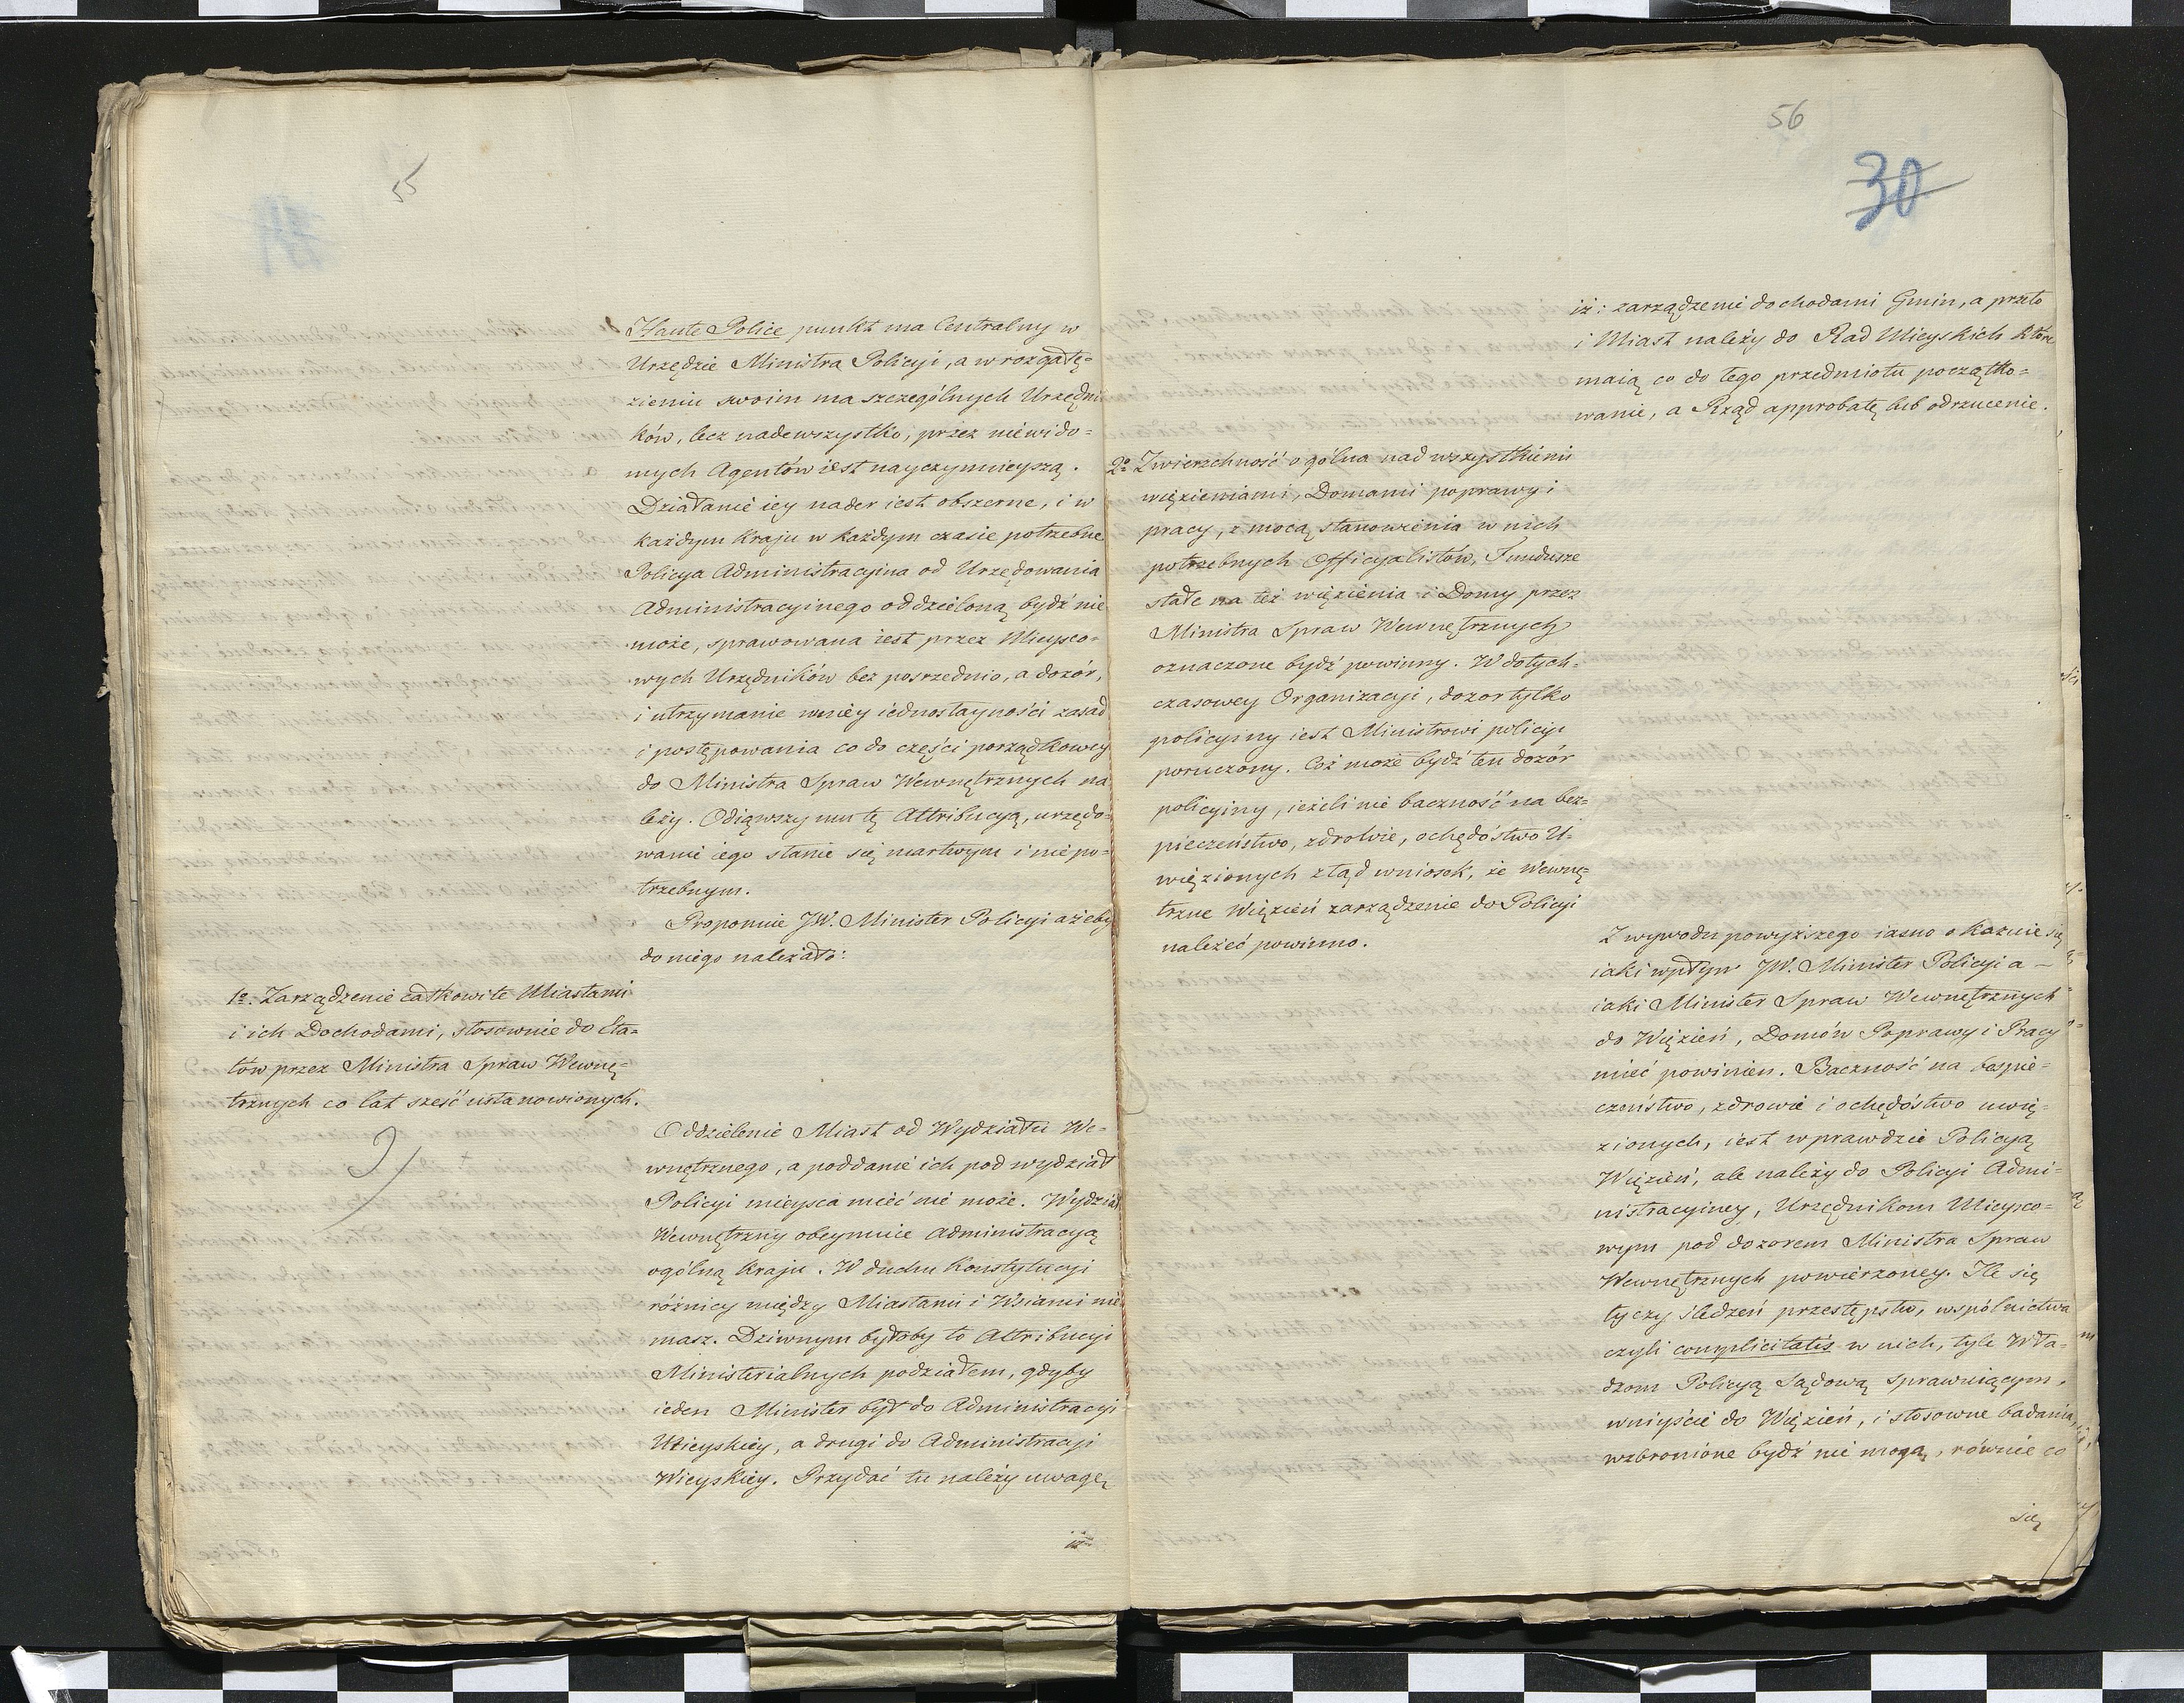 55
Haute Police punkt ma Centralny w
Urzędzie Ministra Policyi, a w rozgałę-
zieniu swoim ma szczególnych Urzędni
ków, lecz nadewszystko, przez niewido-
mych Agentów iest nayczynnieyszą.
Działanie iey nader iest obszerne, i w
każdym Kraju w każdym czasie potrzebne
Policya Administracyina od Urzędowania
Administracyinego oddzieloną bydź nie
może, sprawowana iest przez Mieysco-
wych Urzędników bez posrzednio, a dozór,
i utrzymanie w niey iednostayności zasad
i postępowania co do części porządkowey
do Ministra Spraw Wewnętrznych na
leży. Odiąwszy mu tę Attribucyą, urzędo-
wanie iego stanie się martwym i niepo-
trzebnym.
Proponuie JW. Minister Policyi ażeby
do niego należało:
1o. Zarządzenie całkowite Miastami
i ich Dochodami, stosownie do Eta-
tów przez Ministra Spraw Wewnę-
trznych co lat sześć ustanowionych.
Oddzielenie Miast od Wydziału We-
wnętrznego, a poddanie ich pod wydział
Policyi mieysca mieć nie może. Wydział
Wewnętrzny obeymuie Administracyą
ogólną Kraju. W duchu Konstytucyi
różnicy między Miastami i Wsiami nie
masz. Dziwnym byłoby to Attribucyi
Ministerialnych podziałem, gdyby
ieden Minister był do Administracyi
Mieyskiey, a drugi do Administracyi
Wieyskiey. Przydać tu należy uwagę
iż
56
30
iż: zarządzenie dochodami Gmin, a przeto
i Miast należy do Rad Mieyskich które
maią co do tego przedmiotu początko-
wanie, a Rząd approbatę lub odrzucenie.
2o Zwierzchność ogólna nad wszystkiemi
więzieniami, Domami poprawy i
pracy, z mocą stanowienia w nich
potrzebnych Officyalistów, Fundusze
stałe na też więzienia i Domy przez
Ministra Spraw Wewnętrznych
oznaczone bydź powinny. W dotych-
czasowey Organizacyi, dozor tylko
policyiny iest Ministrowi policyi
poruczony. Coż może bydź ten dozór
policyiny, ieżeli nie baczność na bez-
pieczeństwo, zdrowie, ochędóstwo U-
więzionych ztąd wniosek, że Wewnę-
trzne Więzień zarządzenie do Policyi
należeć powinno.
Z wywodu powyższego iasno okazuie się
iaki wpływ JW. Minister Policyi a -
iaki Minister Spraw Wewnętrznych
do Więzień, Domów Poprawy i Pracy
mieć powinien. Baczność na bespie-
czeństwo, zdrowie i ochędóstwo uwię-
zionych, iest wprawdzie Policyą
Więzień, ale należy do Policyi Admi-
nistracyiney, Urzędnikom Mieysco-
wym pod dozorem Ministra Spraw
Wewnętrznych powierzoney. Ile się
tyczy śledzeń przestępstw, wspólnictwa
czyli complicitatis w nich, tyle Wła-
dzom Policyą Sądową sprawuiącym,
wniyście do Więzień, i stosowne badania,
wzbronione bydź nie mogą, równie co
się